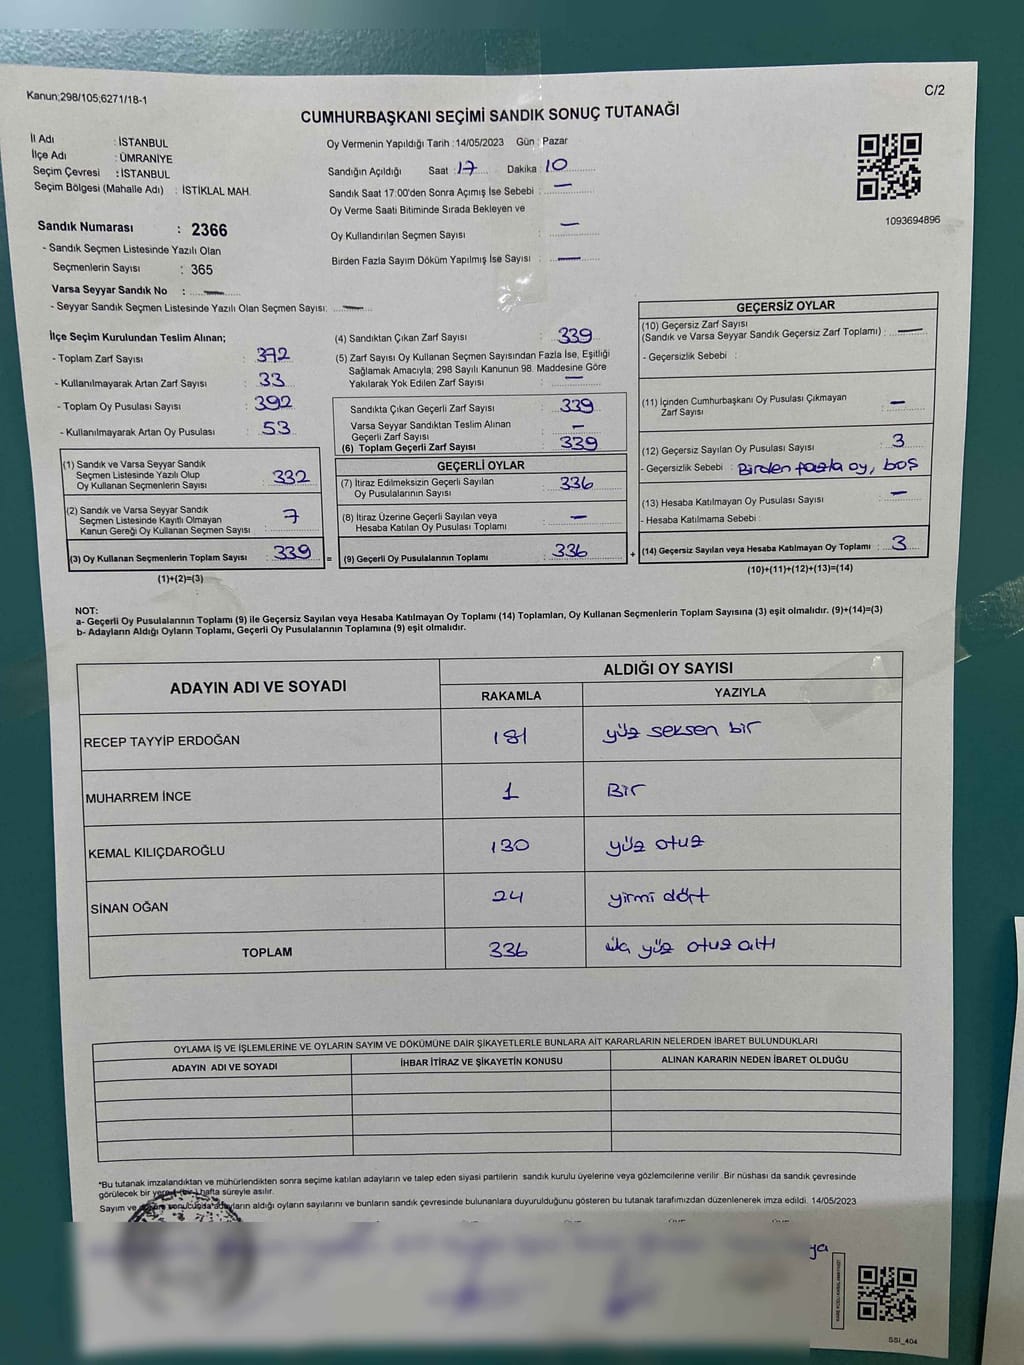 Kanun;298/105;6271/18-1
C/2
CUMHURBAŞKANI SEÇİMİ SANDIK SONUÇ TUTANAĞI
İl Adı : İSTANBUL
İlçe Adı : ÜMRANİYE
Seçim Çevresi : İSTANBUL
Seçim Bölgesi (Mahalle Adı) : İSTİKLAL MAH.
Oy Vermenin Yapıldığı Tarih : 14/05/2023 Gün : Pazar
Sandığın Açıldığı Saat : 17 Dakika : 10
Sandık Saat 17:00'den Sonra Açımış İse Sebebi : —
Oy Verme Saati Bitiminde Sırada Bekleyen ve
Oy Kullandırılan Seçmen Sayısı : —
Birden Fazla Sayım Döküm Yapılmış İse Sayısı : —
1093694896
Sandık Numarası : 2366
- Sandık Seçmen Listesinde Yazılı Olan
Seçmenlerin Sayısı : 365
Varsa Seyyar Sandık No : —
- Seyyar Sandık Seçmen Listesinde Yazılı Olan Seçmen Sayısı: —
İlçe Seçim Kurulundan Teslim Alınan;
- Toplam Zarf Sayısı : 372
- Kullanılmayarak Artan Zarf Sayısı : 33
- Toplam Oy Pusulası Sayısı : 392
- Kullanılmayarak Artan Oy Pusulası : 53
(1) Sandık ve Varsa Seyyar Sandık
Seçmen Listesinde Yazılı Olup
Oy Kullanan Seçmenlerin Sayısı : 332
(2) Sandık ve Varsa Seyyar Sandık
Seçmen Listesinde Kayıtlı Olmayan
Kanun Gereği Oy Kullanan Seçmen Sayısı : 7
(3) Oy Kullanan Seçmenlerin Toplam Sayısı : 339
(1)+(2)=(3)
(4) Sandıktan Çıkan Zarf Sayısı : 339
(5) Zarf Sayısı Oy Kullanan Seçmen Sayısından Fazla İse, Eşitliği
Sağlamak Amacıyla; 298 Sayılı Kanunun 98. Maddesine Göre
Yakılarak Yok Edilen Zarf Sayısı : —
Sandıkta Çıkan Geçerli Zarf Sayısı : 339
Varsa Seyyar Sandıktan Teslim Alınan
Geçerli Zarf Sayısı : —
(6) Toplam Geçerli Zarf Sayısı : 339
GEÇERLİ OYLAR
(7) İtiraz Edilmeksizin Geçerli Sayılan
Oy Pusulalarının Sayısı : 336
(8) İtiraz Üzerine Geçerli Sayılan veya
Hesaba Katılan Oy Pusulası Toplamı : —
= (9) Geçerli Oy Pusulalarının Toplamı : 336
GEÇERSİZ OYLAR
(10) Geçersiz Zarf Sayısı
(Sandık ve Varsa Seyyar Sandık Geçersiz Zarf Toplamı) : —
- Geçersizlik Sebebi :
(11) İçinden Cumhurbaşkanı Oy Pusulası Çıkmayan
Zarf Sayısı : —
(12) Geçersiz Sayılan Oy Pusulası Sayısı : 3
- Geçersizlik Sebebi : Birden fazla oy, boş
(13) Hesaba Katılmayan Oy Pusulası Sayısı : —
- Hesaba Katılmama Sebebi :
+ (14) Geçersiz Sayılan veya Hesaba Katılmayan Oy Toplamı : 3
(10)+(11)+(12)+(13)=(14)
NOT:
a- Geçerli Oy Pusulalarının Toplamı (9) ile Geçersiz Sayılan veya Hesaba Katılmayan Oy Toplamı (14) Toplamları, Oy Kullanan Seçmenlerin Toplam Sayısına (3) eşit olmalıdır. (9)+(14)=(3)
b- Adayların Aldığı Oyların Toplamı, Geçerli Oy Pusulalarının Toplamına (9) eşit olmalıdır.
ADAYIN ADI VE SOYADI
ALDIĞI OY SAYISI
RAKAMLA YAZIYLA
RECEP TAYYİP ERDOĞAN 181 yüz seksen bir
MUHARREM İNCE 1 Bir
KEMAL KILIÇDAROĞLU 130 yüz otuz
SİNAN OĞAN 24 yirmi dört
TOPLAM 336 üç yüz otuz altı
OYLAMA İŞ VE İŞLEMLERİNE VE OYLARIN SAYIM VE DÖKÜMÜNE DAİR ŞİKAYETLERLE BUNLARA AİT KARARLARIN NELERDEN İBARET BULUNDUKLARI
ADAYIN ADI VE SOYADI İHBAR İTİRAZ VE ŞİKAYETİN KONUSU ALINAN KARARIN NEDEN İBARET OLDUĞU
*Bu tutanak imzalandıktan ve mühürlendikten sonra seçime katılan adayların ve talep eden siyasi partilerin sandık kurulu üyelerine veya gözlemcilerine verilir. Bir nüshası da sandık çevresinde
görülecek bir yere 1 (bir) hafta süreyle asılır.
Sayım ve döküm sonucunda adayların aldığı oyların sayılarını ve bunların sandık çevresinde bulunanlara duyurulduğunu gösteren bu tutanak tarafımızdan düzenlenerek imza edildi. 14/05/2023
ya
SSI_404